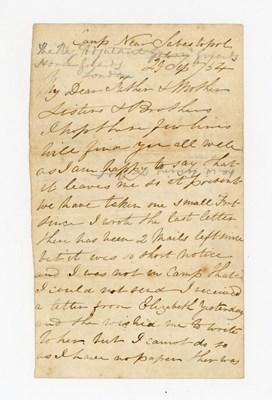 Camp Near Sebastopol
29 Sep /54
My Dear Father & Mother
Sisters & Brothers
I hope these few lines
Will find you all well
as I am happy to say that
it leaves me so at present
We have taken one small Fort
since I wrote the last letter
there has been 2 Mails left since
but it was so short notice
and I was not in Camp that
I could not send I received
a letter from Elizabeth Yesterday
and she wished me to write
to her but I cannot do so
as I have no paper ther was